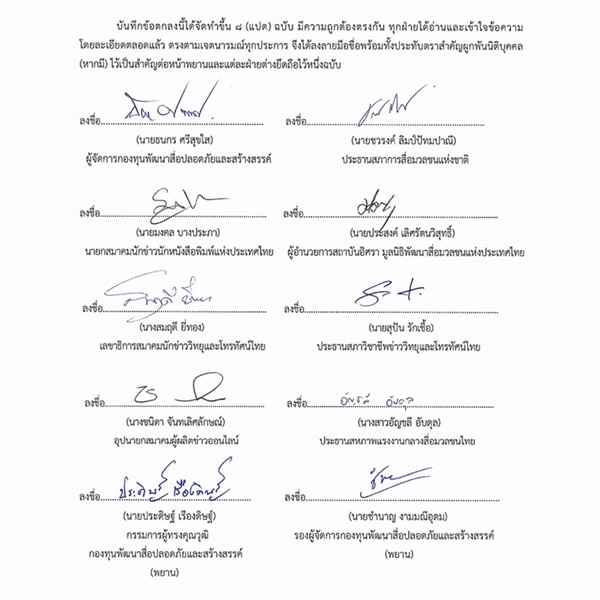 บันทึกข้อตกลงนี้ได้จัดทำขึ้น ๘ (แปด) ฉบับ มีความถูกต้องตรงกัน ทุกฝ่ายได้อ่านและเข้าใจข้อความ
โดยละเอียดตลอดแล้ว ตรงตามเจตนารมณ์ทุกประการ จึงได้ลงลายมือชื่อพร้อมทั้งประทับตราสำคัญผูกพันนิติบุคคล
(หากมี) ไว้เป็นสำคัญต่อหน้าพยานและแต่ละฝ่ายต่างยึดถือไว้หนึ่งฉบับ
ลงชื่อ
(นายธนกร ศรีสุขใส)
ผู้จัดการกองทุนพัฒนาสื่อปลอดภัยและสร้างสรรค์
ลงชื่อ
(นายชวรงค์ ลิมป์ปัทมปาณี)
ประธานสภาการสื่อมวลชนแห่งชาติ
ลงชื่อ
(นายมงคล บางประภา)
นายกสมาคมนักข่าวนักหนังสือพิมพ์แห่งประเทศไทย
ลงชื่อ
(นายประสงค์ เลิศรัตนวิสุทธิ์)
ผู้อำนวยการสถาบันอิศรา มูลนิธิพัฒนาสื่อมวลชนแห่งประเทศไทย
ลงชื่อ
(นางสมฤดี ยี่ทอง)
เลขาธิการสมาคมนักข่าววิทยุและโทรทัศน์ไทย
ลงชื่อ
(นายสุปัน รักเชื้อ)
ประธานสภาวิชาชีพข่าววิทยุและโทรทัศน์ไทย
ลงชื่อ
(นางชนิดา จันทเลิศลักษณ์)
อุปนายกสมาคมผู้ผลิตข่าวออนไลน์
ลงชื่อ อัญชลี อับดุล
(นางสาวอัญชลี อับดุล)
ประธานสหภาพแรงงานกลางสื่อมวลชนไทย
ลงชื่อ ประดิษฐ์ เรืองดิษฐ์
(นายประดิษฐ์ เรืองดิษฐ์)
กรรมการผู้ทรงคุณวุฒิ
กองทุนพัฒนาสื่อปลอดภัยและสร้างสรรค์
(พยาน)
ลงชื่อ
(นายชำนาญ งามมณีอุดม)
รองผู้จัดการกองทุนพัฒนาสื่อปลอดภัยและสร้างสรรค์
(พยาน)